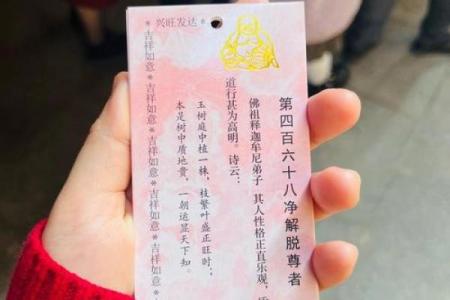 兴旺发达*
第四百六十八净解脱尊者
佛祖释迦牟尼弟子 其人性格正直乐观,
道行甚为高明。诗云:
玉树庭中植一株,枝繁叶盛正旺时;
本是树中质地贵,一朝运显天下知。
*吉祥如意*吉祥如意*吉祥如意*吉祥如意*